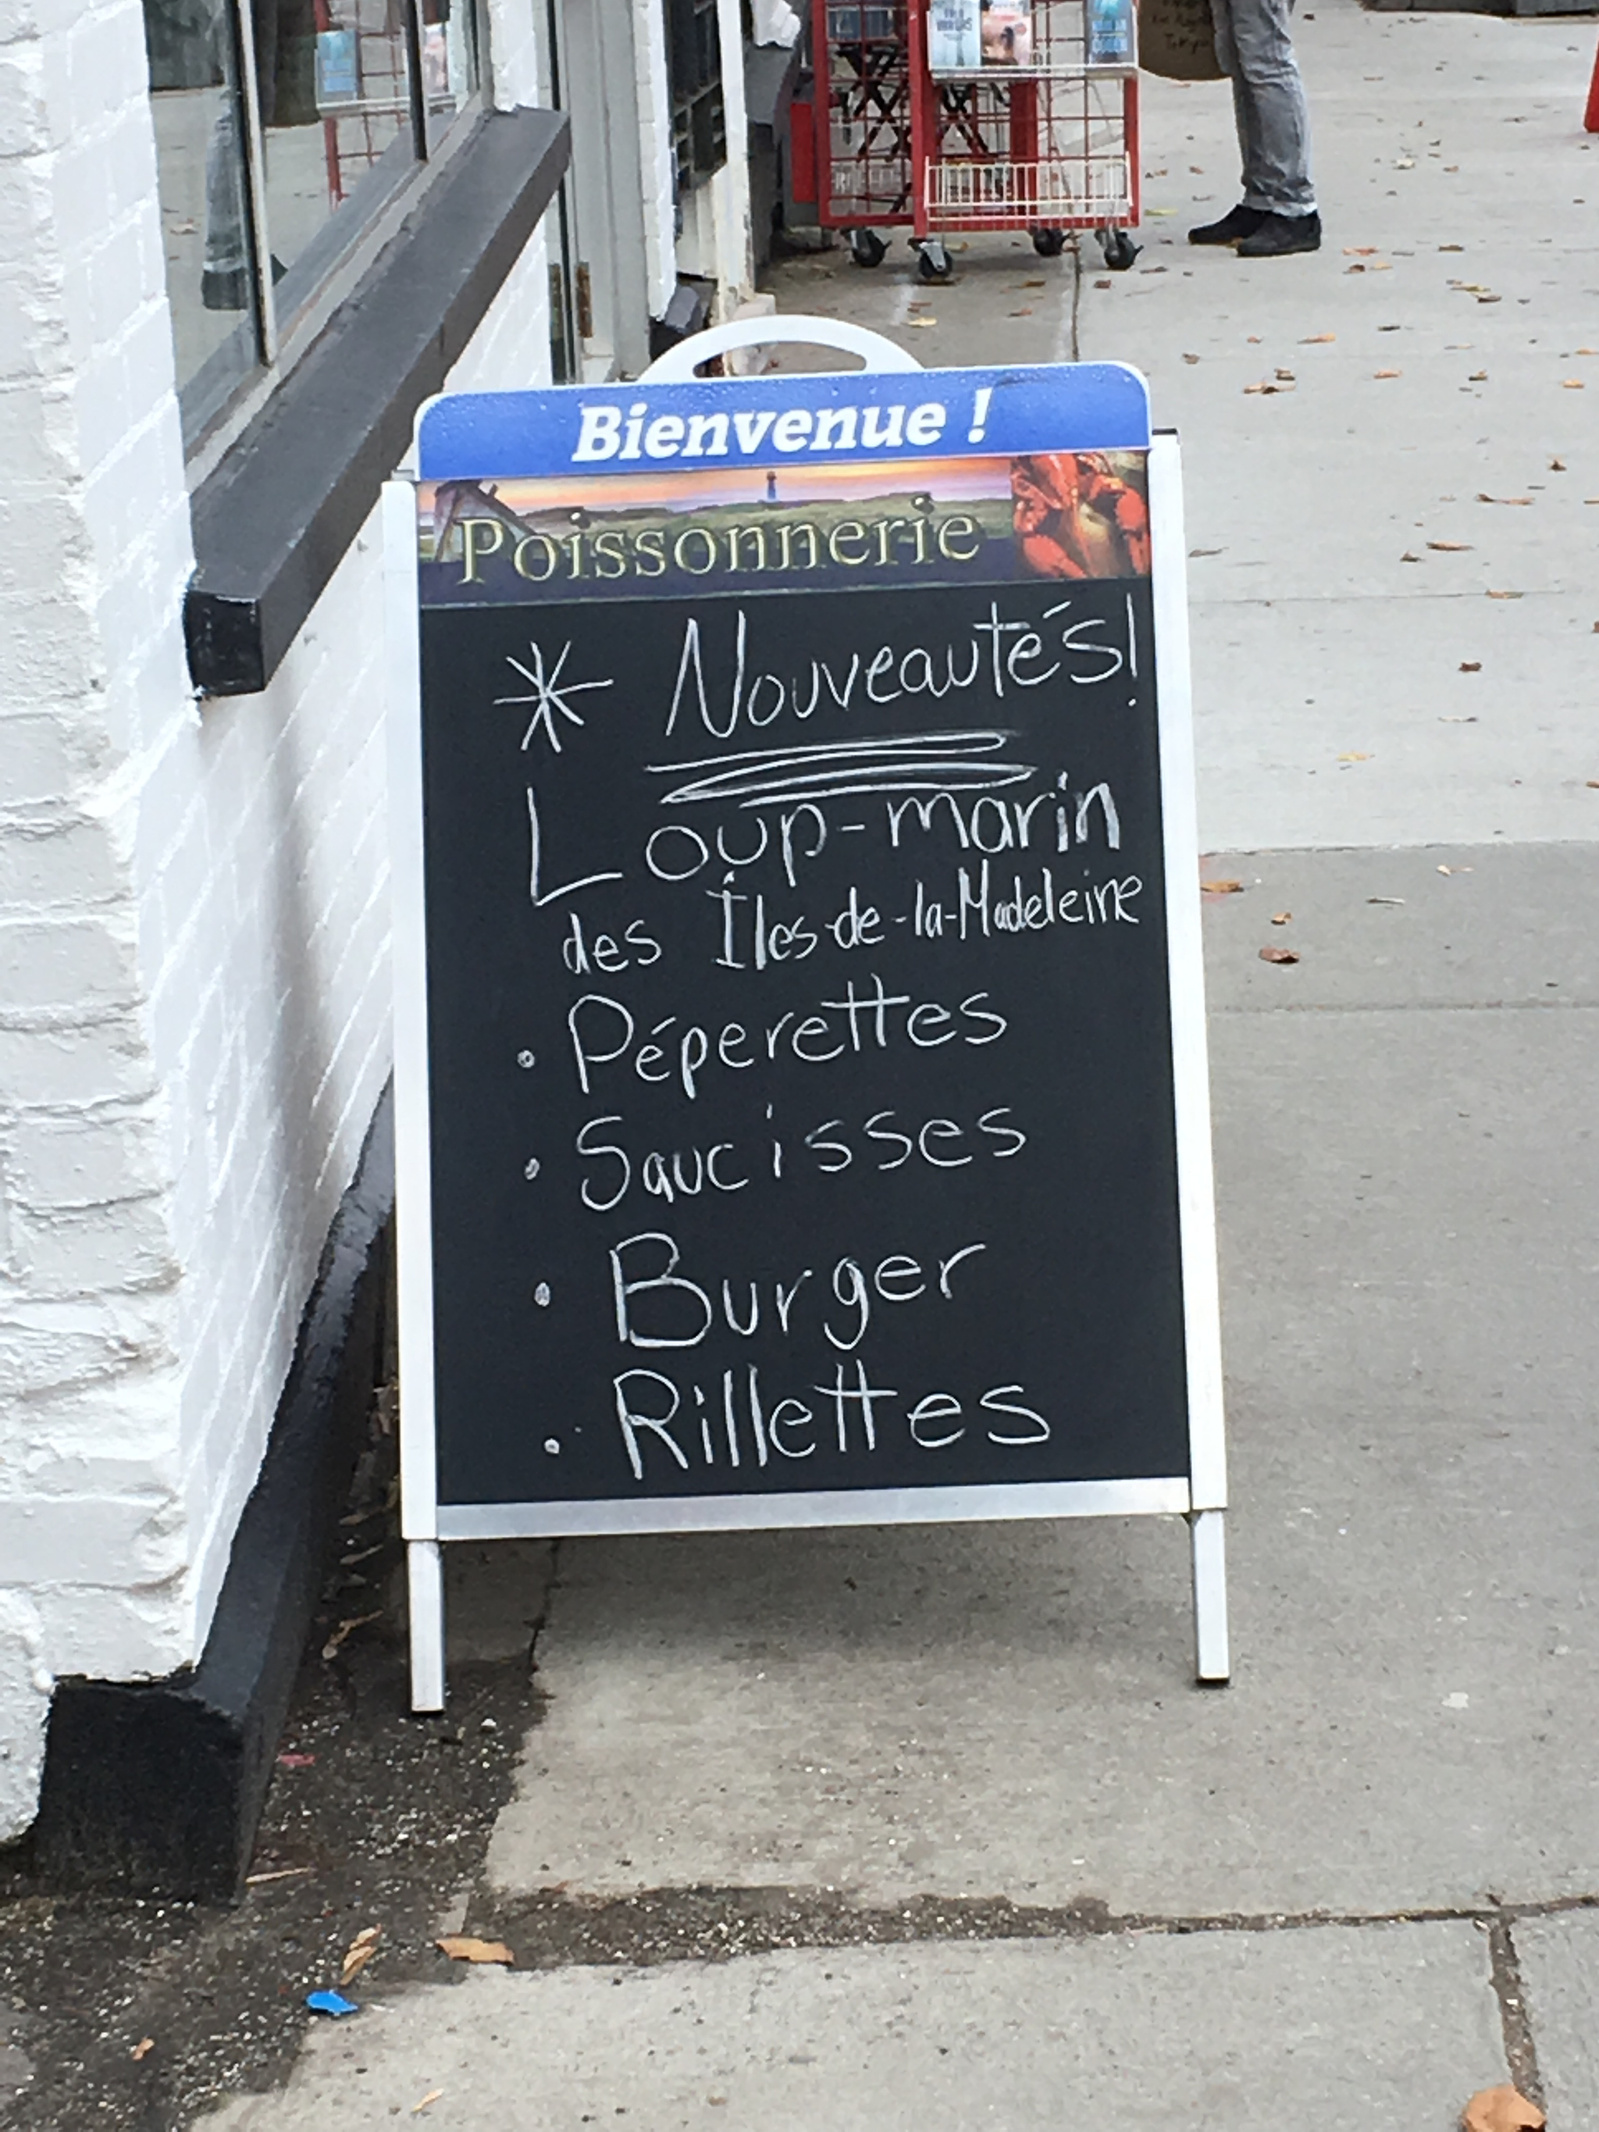 Bienvenue !
Poissonnerie
* Nouveautés!
Loup-marin
des Îles-de-la-Madeleine
• Péperettes
• Saucisses
• Burger
• Rillettes